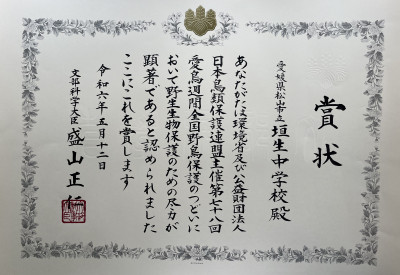 賞状
愛媛県松山市立垣生中学校殿
あなたがたは環境省及び公益財団法人
日本鳥類保護連盟主催第七十八回
愛鳥週間全国野鳥保護のつどいに
おいて野生生物保護のための尽力が
顕著であると認められました
ここにこれを賞します
令和六年五月十二日
文部科学大臣 盛山正